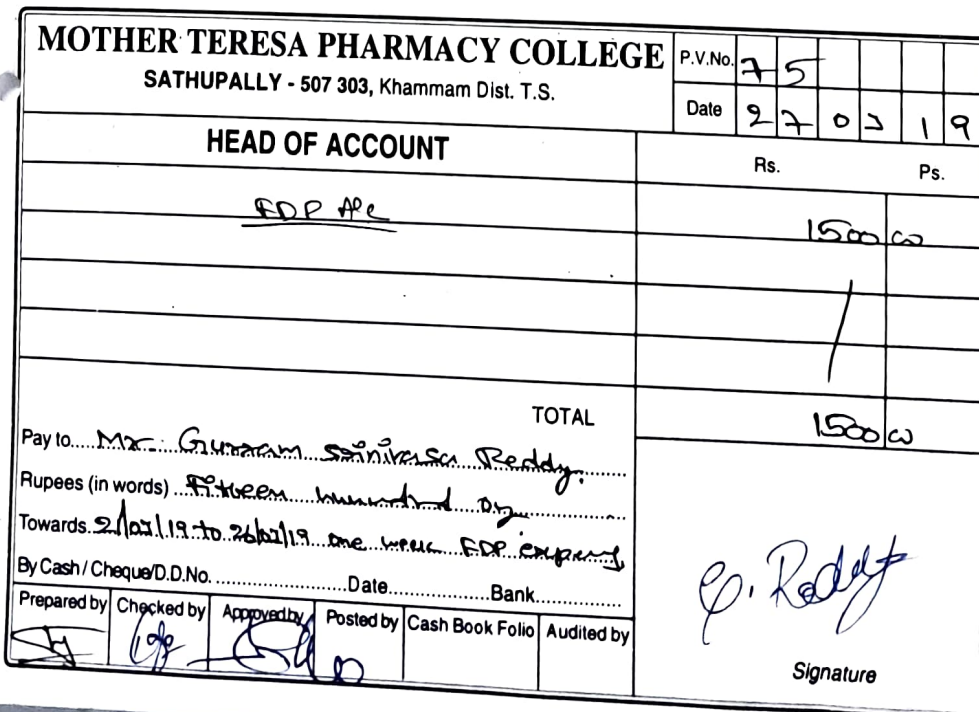 MOTHER TERESA PHARMACY COLLEGE
SATHUPALLY - 507 303, Khammam Dist. T.S.
P.V.No. 75
Date 27 0 19
HEAD OF ACCOUNT
Rs. Ps.
FDP A/c 1500 00
TOTAL 1500 00
Pay to..... Mr. Gurram Srinivasa Reddy.
Rupees (in words) Fifteen hundred only
Towards /19 to 26/ /19 one week FDP
By Cash / Cheque/D.D.No. ....................Date....................Bank.................
Prepared by Checked by Approved by Posted by Cash Book Folio Audited by
G. Reddy
Signature